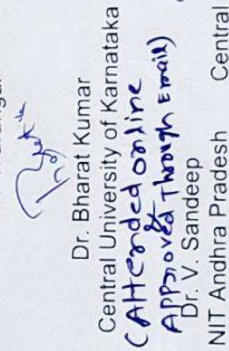 Dr. Bharat Kumar
Central University of Karnataka
(Attended online
&
Approved Through Email)
Dr. V. Sandeep
NIT Andhra Pradesh Central